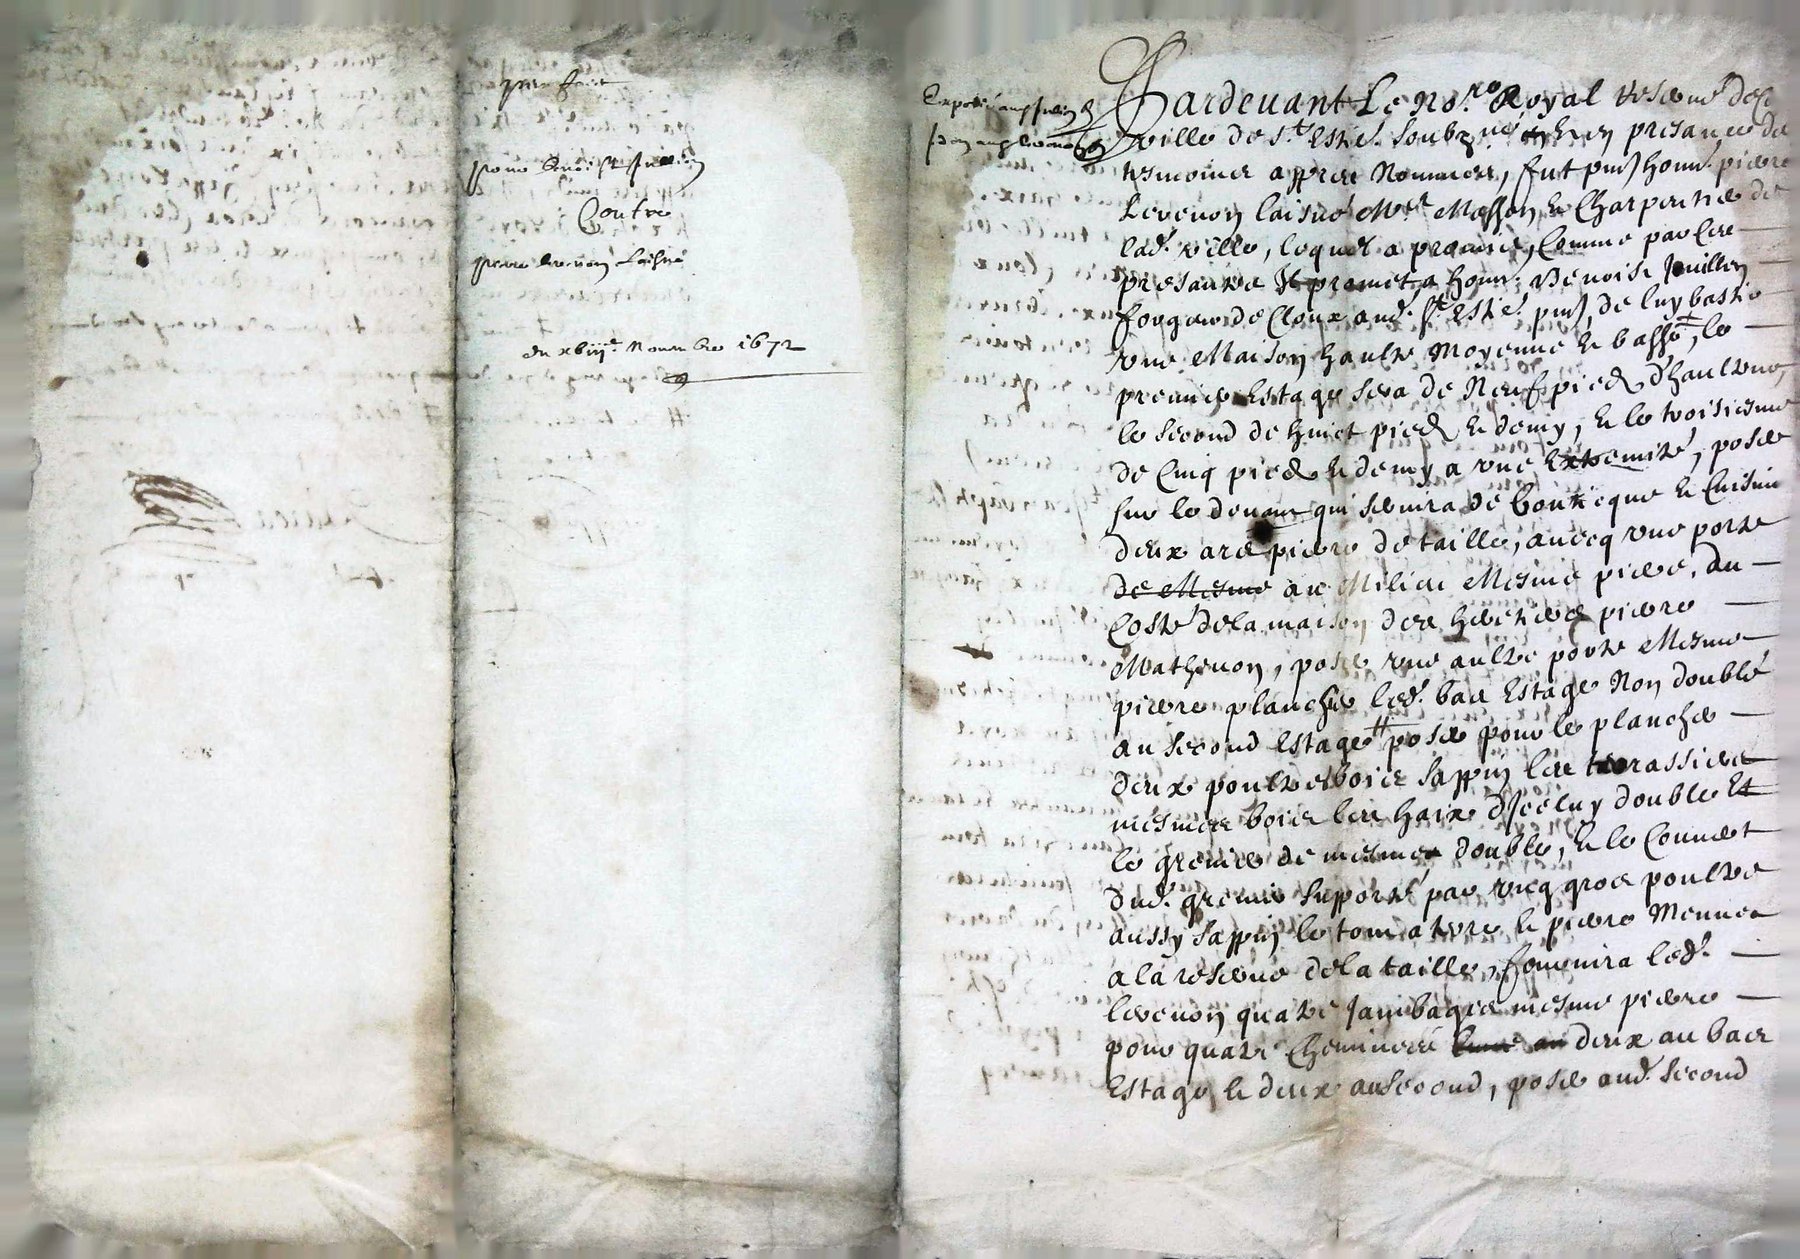 prix faict
pour benoist Jullien
Contre
pierre levenon laisné
du xbiije Novembre 1672
Expedié aud Jullien
Pardevant Le No.re Royal reservé de la
ville de St Estie. soubzné, & en presance des
tesmoings appres Nommes, fut pnt honn. pierre
Levenon laisné Mre Masson & Charpentier de
lad. ville, lequel a promis, Comme par Ces
presantes Il promet a honn. Benoist Juillien
forgeur de Cloux aud. St Estie. pnt, de luy bastir
une Maison haulte Moyenne & basse, le
premier Estage sera de Neuf pieds d'haulteur,
le second de huict pieds & demy, & le troisiesme
de Cinq pieds & demy a une Extremité, poser
sur le devant qui servira de bouticque & Cuisine
deux arcs pierre de taille, avecq une porte
de Mesme au Milieu Mesme pierre, du
Costé de la maison des heritiers pierre
Mathevon, poser une aultre porte Mesme
pierre plancher led. bas Estage Non doublé
au second Estage # poser pour le plancher
deux poultres bois sappin les trassiers
mesmes bois les haix d'Iceluy doubles Et
le grenier de mesmes double, & le Couvert
dud. grenier supporté par cincq gros poultres
aussy sappin le tour a terre & pierre Menues
a la reserve de la taille, fournira led.
levenon quatre Jambages mesme pierre
pour quatre Cheminees deux au bas
Estage & deux au second, poser aud. second